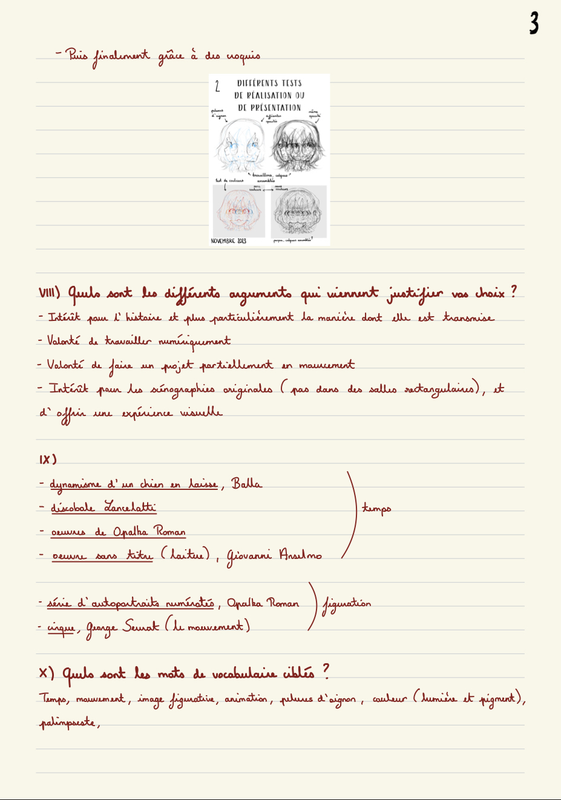 3
- Puis finalement grâce à des croquis
2
DIFFÉRENTS TESTS
DE RÉALISATION OU
DE PRÉSENTATION
NOVEMBRE 2023
VIII) Quels sont les différents arguments qui viennent justifier vos choix ?
- Intérêt pour l'histoire et plus particulièrement la manière dont elle est transmise
- Volonté de travailler numériquement
- Volonté de faire un projet partiellement en mouvement
- Intérêt pour les scénographies originales (pas dans des salles rectangulaires), et
d'offrir une expérience visuelle
IX)
- dynamisme d'un chien en laisse, Balla
- discobole Lancelotti
- oeuvres de Opalka Roman
temps
- oeuvre sans titre (laitue), Giovanni Anselmo
- série d'autoportraits numérotés, Opalka Roman
figuration
- cirque, George Seurat (le mouvement)
X) Quels sont les mots de vocabulaire ciblés ?
Temps, mouvement, image figurative, animation, pelures d'oignon, couleur (lumière et pigment),
palimpseste,